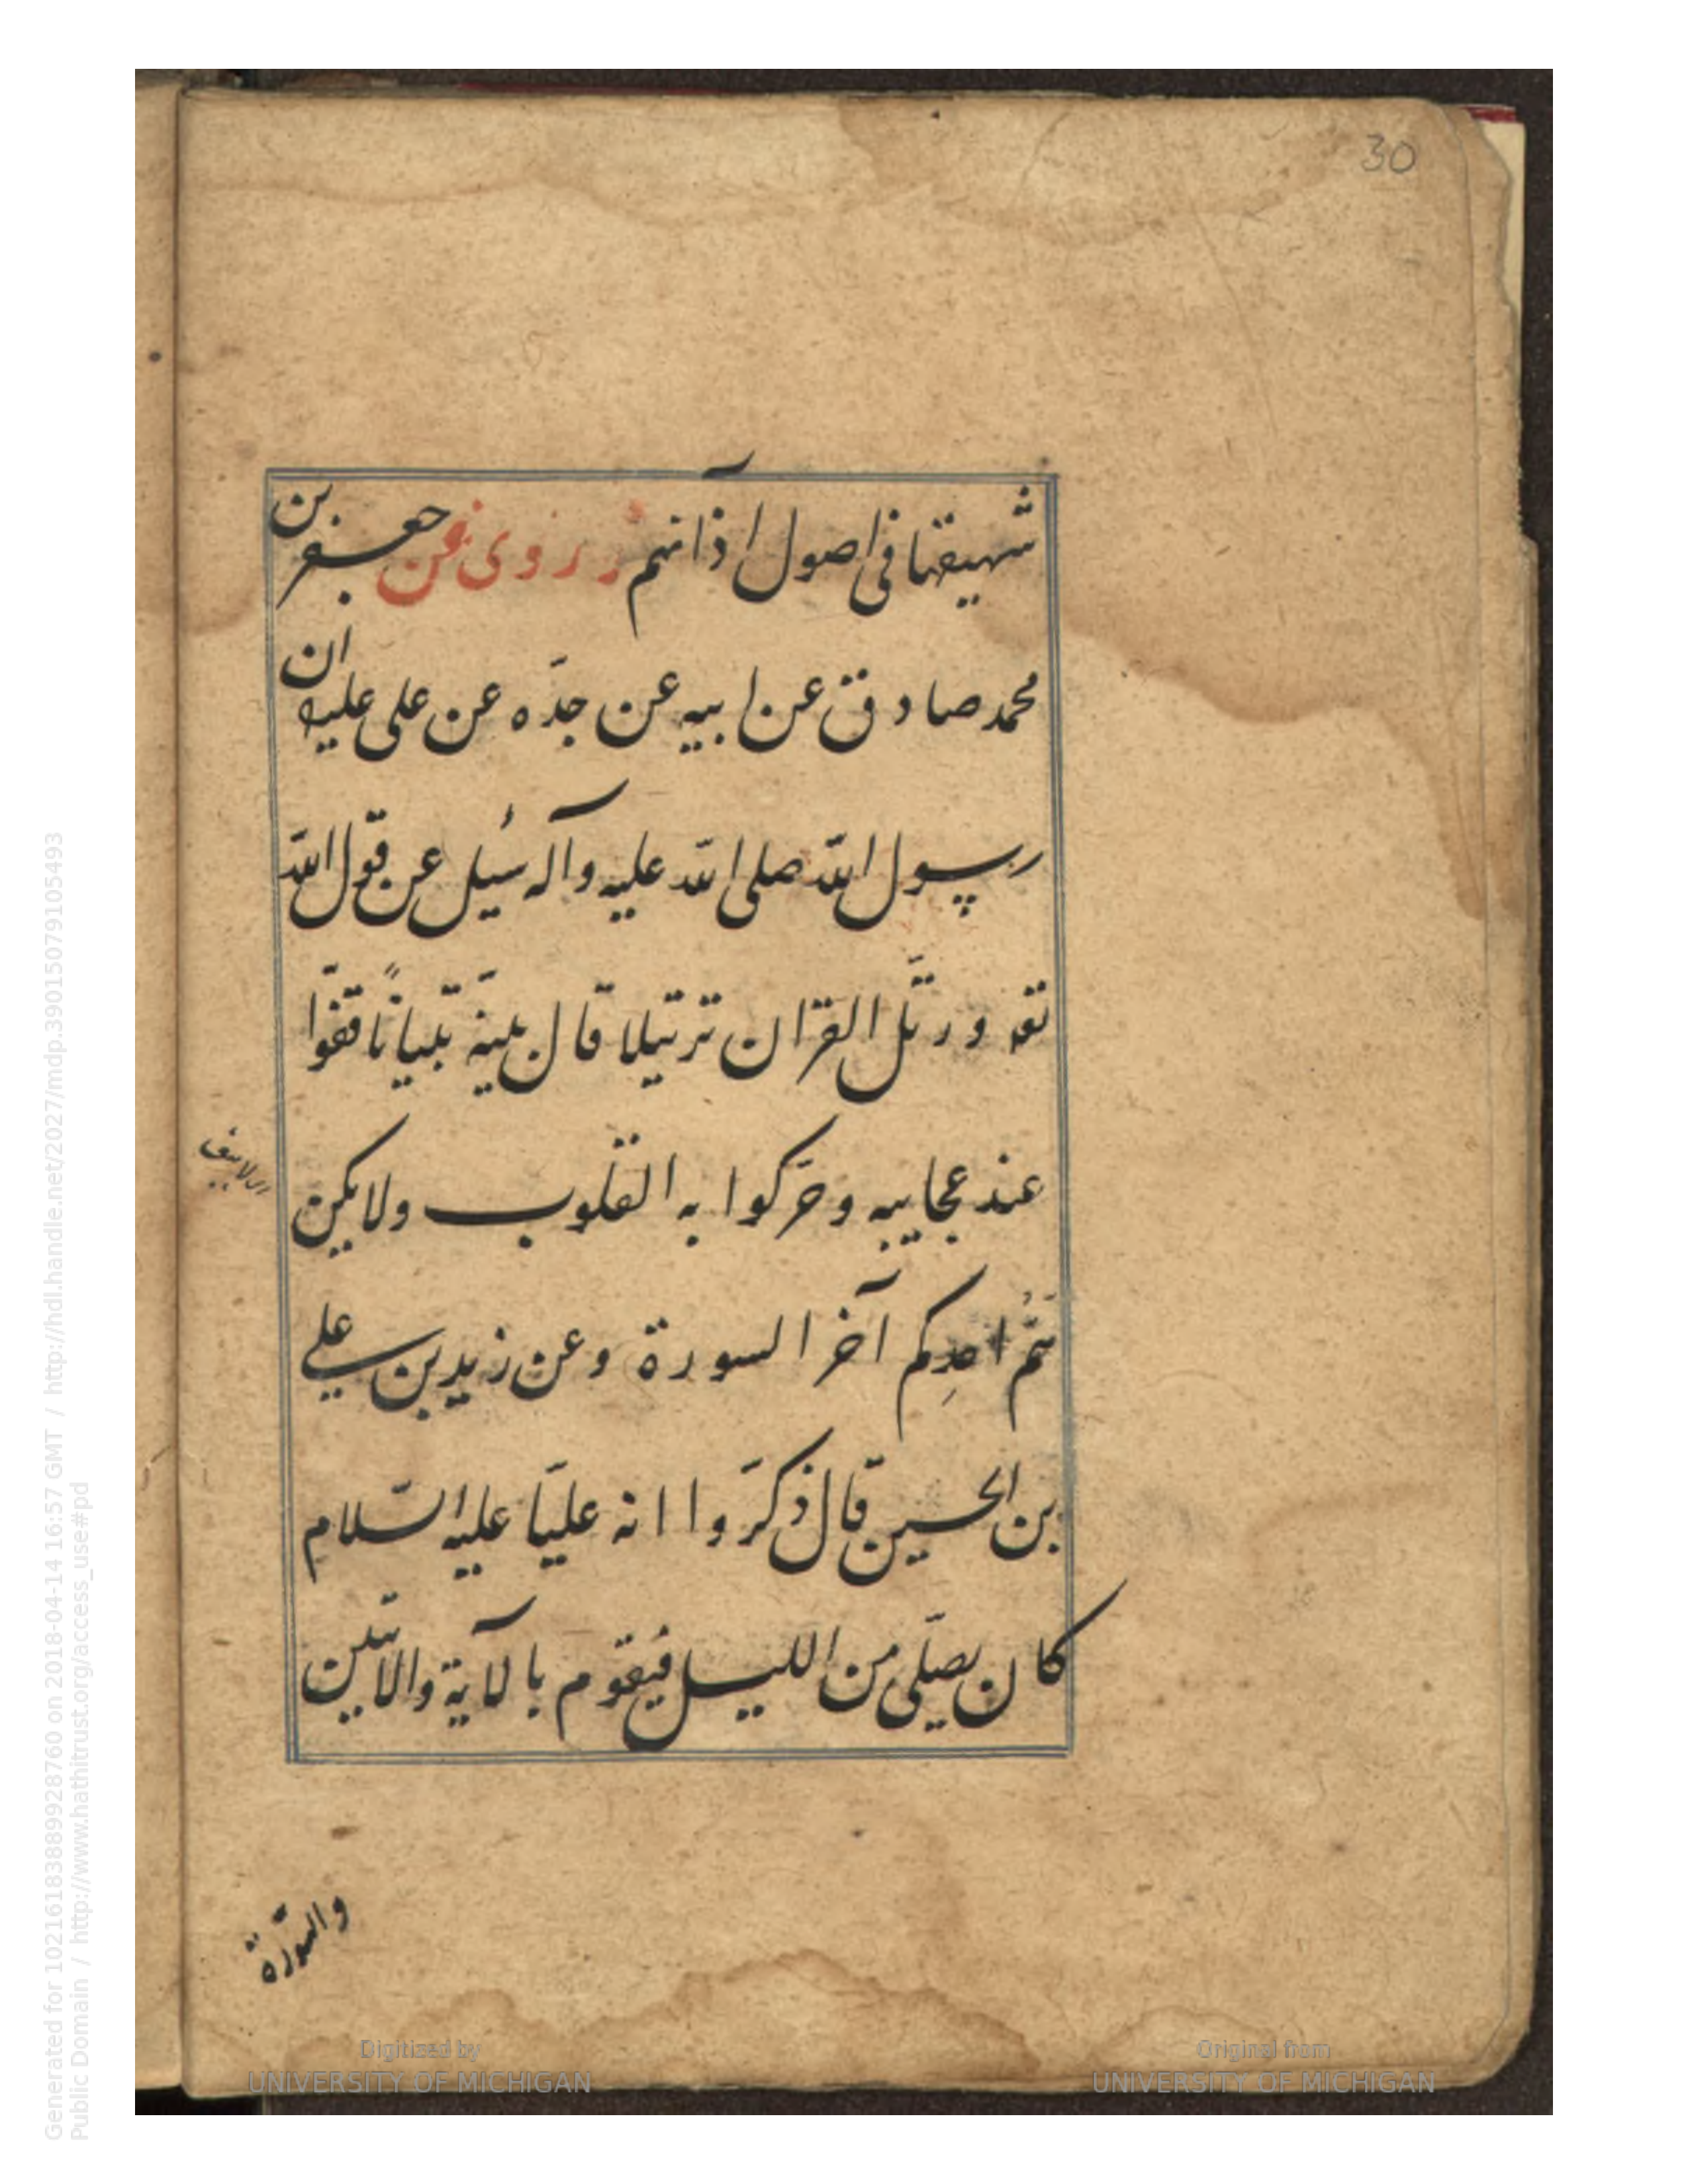 30
شهيقها فى اصول اذانهم وروى عن جعفر بن
محمد صادق عن ابيه عن جدّه عن على عليه ان
رسول اللّه صلى اللّه عليه وآله سُيل عن قول اللّه
تعه ورتّل القرآن ترتيلا قال بينّه تبياناً قفوا
عند عجايبه وحرّكوا به القلوب ولا يكن
همُّ احدِكم آخر السورة وعن زيد بن على
بن الحسين قال ذكروا انه عليّا عليه السّلام
كان يصلّى من الليل فيقوم بالآية والآيتين
والسّورة
Generated for 10216183889928760 on 2018-04-14 16:57 GMT / http://hdl.handle.net/2027/mdp.39015079105493
Public Domain / http://www.hathitrust.org/access_use#pd
Digitized by
UNIVERSITY OF MICHIGAN
Original from
UNIVERSITY OF MICHIGAN